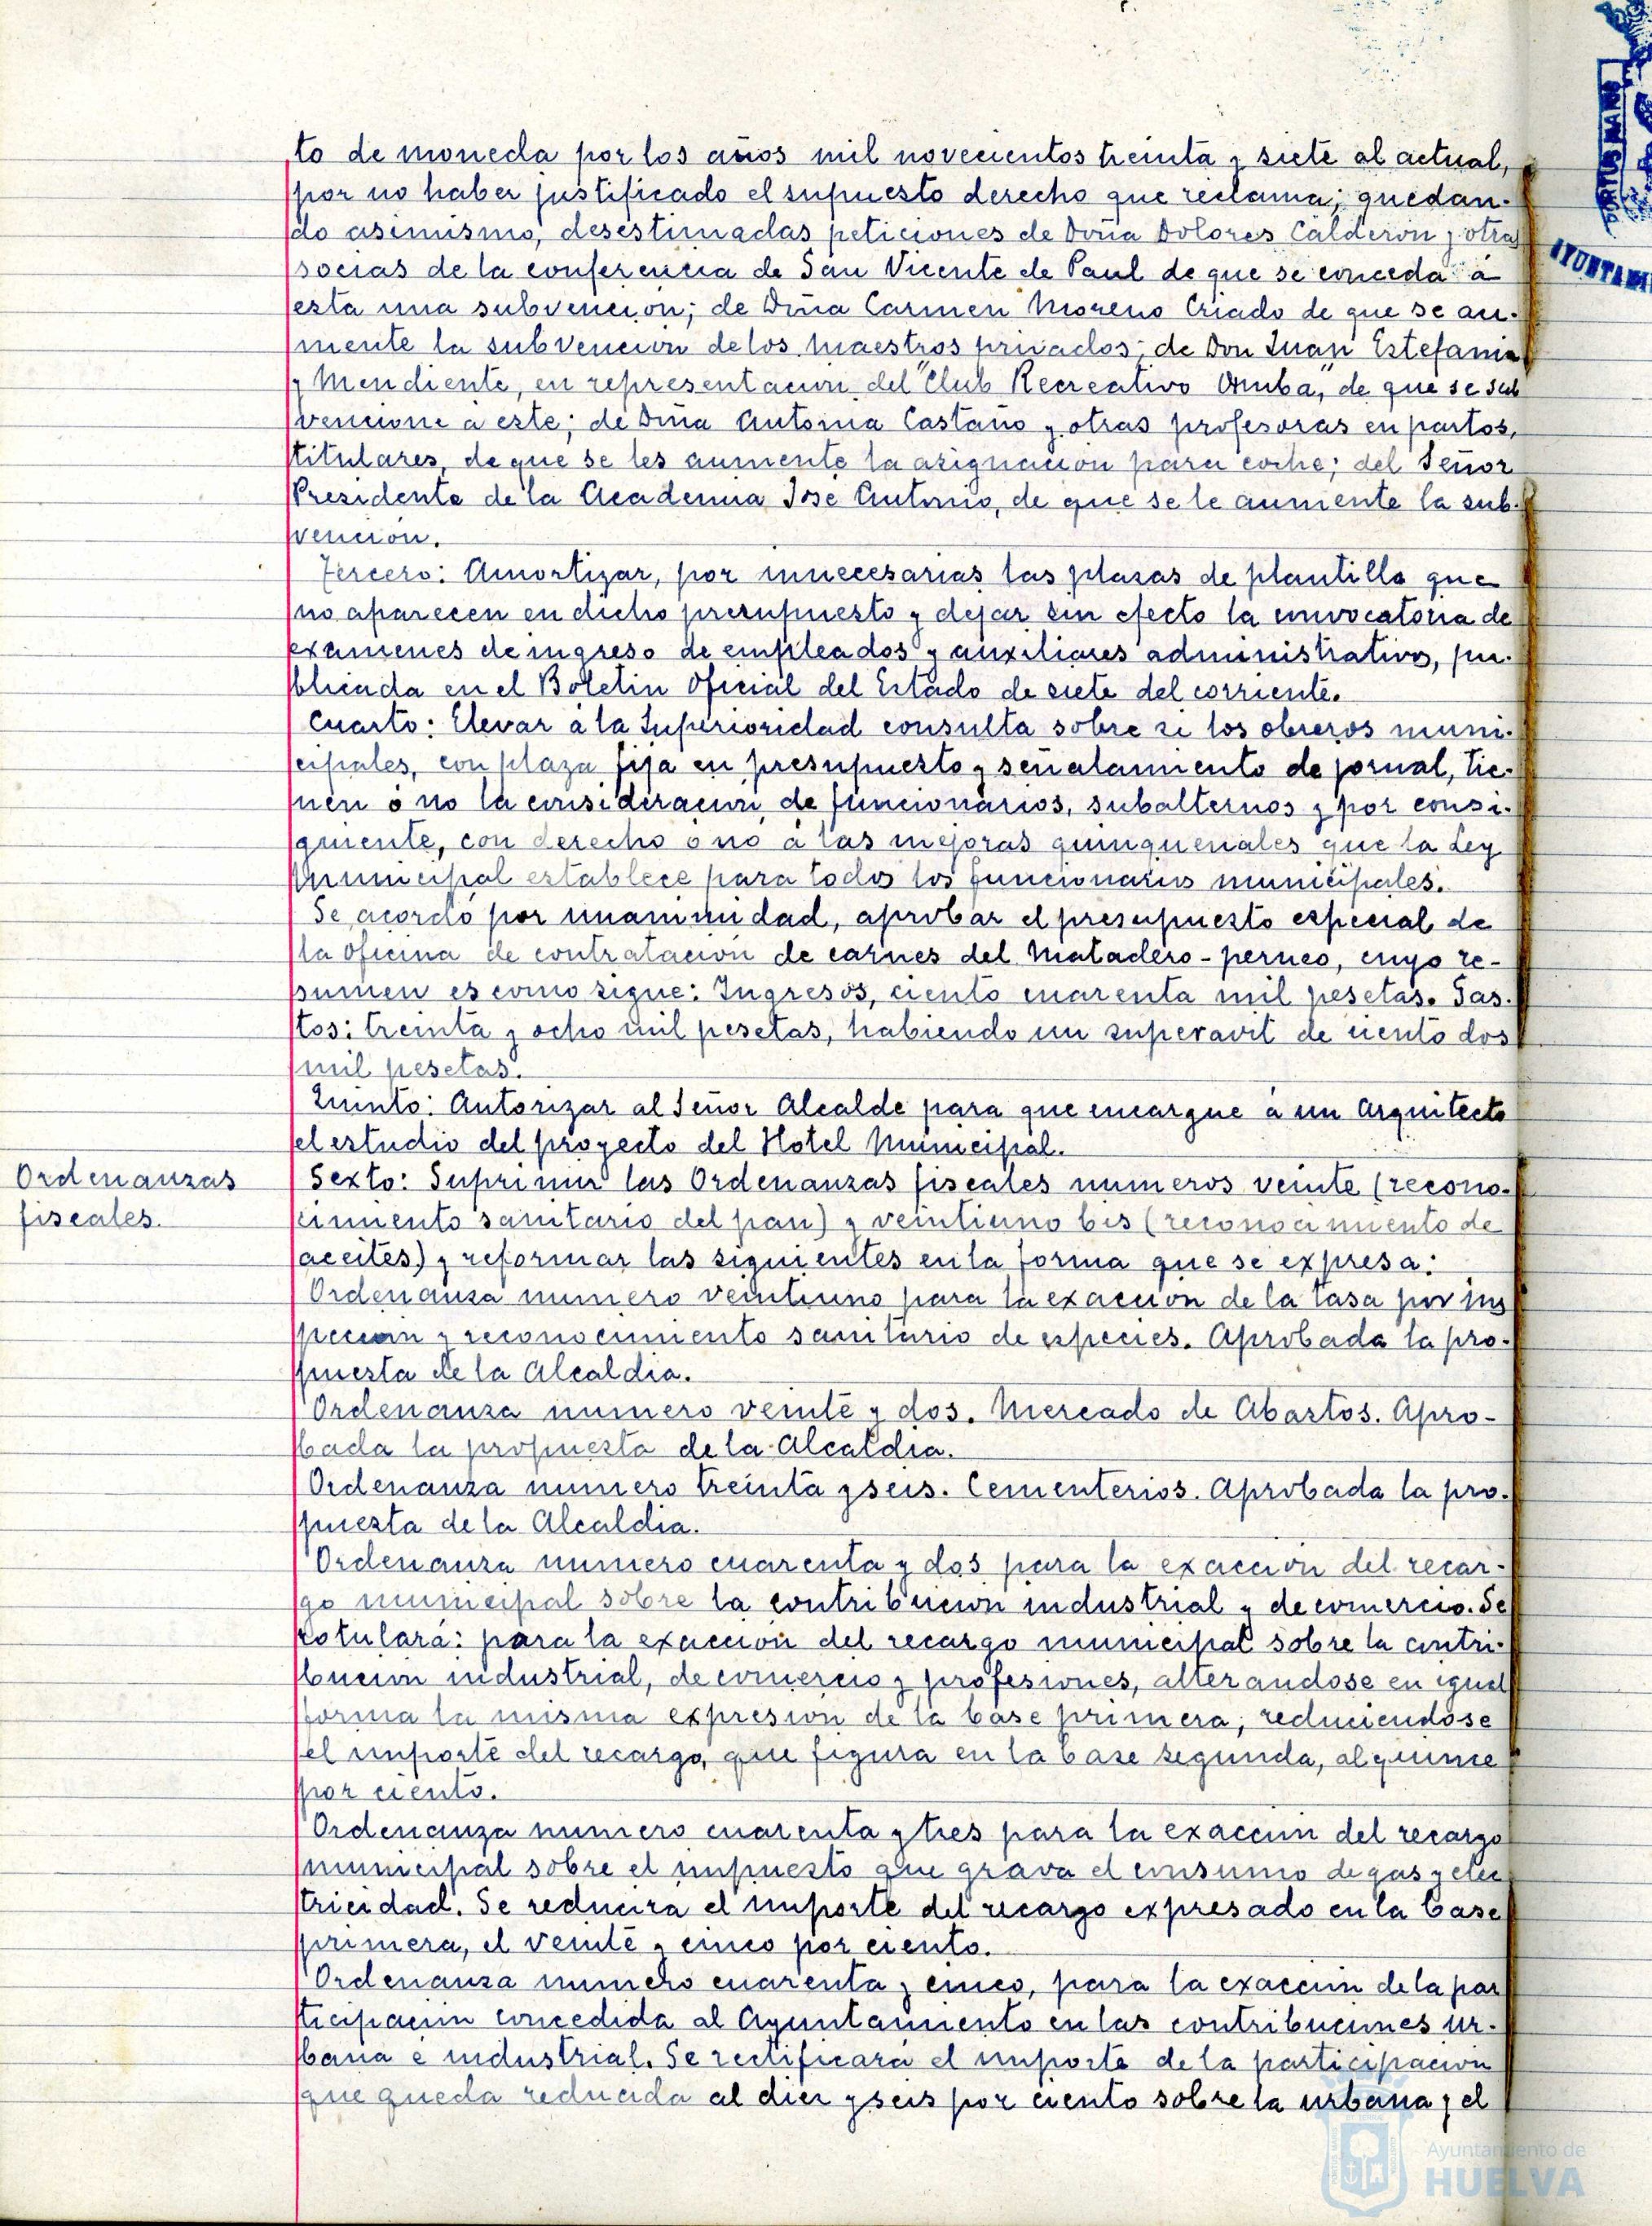 to de moneda por los años mil novecientos treinta y siete al actual,
por no haber justificado el supuesto derecho que reclama; quedan-
do asimismo, desestimadas peticiones de Doña Dolores Calderón y otras
socias de la conferencia de San Vicente de Paul de que se conceda á
esta una subvención; de Doña Carmen Moreno Criado de que se au-
mente la subvencion de los maestros privados; de Don Juan Estefania
y Mendiente, en representacion del "Club Recreativo Onuba," de que se sub
vencione a este; de Doña Antonia Castaño y otras profesoras en partos,
titulares, de que se les aumente la asignacion para coche; del Señor
Presidente de la Academia José Antonio, de que se le aumente la sub-
vención.
Tercero: Amortizar, por innecesarias las plazas de plantilla que
no aparecen en dicho presupuesto y dejar sin efecto la convocatoria de
examenes de ingreso de empleados y auxiliares administrativos, pu-
blicada en el Boletin Oficial del Estado de siete del corriente.
Cuarto: Elevar á la Superioridad consulta sobre si los obreros muni-
cipales, con plaza fija en presupuesto y señalamiento de jornal, tie-
nen ó no la consideración de funcionarios, subalternos y por consi-
guiente, con derecho ó no á las mejoras quinquenales que la Ley
Municipal establece para todos los funcionarios municipales.
Se acordó por unanimidad, aprobar el presupuesto especial de
la oficina de contratacion de carnes del Matadero-perneo, cuyo re-
sumen es como sigue: Ingresos, ciento cuarenta mil pesetas. Gas-
tos: treinta y ocho mil pesetas, habiendo un superavit de ciento dos
mil pesetas.
Quinto: Autorizar al Señor Alcalde para que encargue á un Arquitecto
el estudio del proyecto del Hotel Municipal.
Ordenanzas
fiscales.
Sexto: Suprimir las Ordenanzas fiscales numeros veinte (recono-
cimiento sanitario del pan) y veintiuno bis (reconocimiento de
aceites) y reformar las siguientes en la forma que se expresa:
Ordenanza numero veintiuno para la exacción de la tasa por ins
peccion y reconocimiento sanitario de especies. Aprobada la pro-
puesta de la Alcaldia.
Ordenanza numero veinte y dos. Mercado de Abastos. Apro-
bada la propuesta de la Alcaldia.
Ordenanza numero treinta y seis. Cementerios. Aprobada la pro-
puesta de la Alcaldia.
Ordenanza numero cuarenta y dos para la exacción del recar-
go municipal sobre la contribucion industrial y de comercio. Se
rotulará: para la exacción del recargo municipal sobre la contri-
bución industrial, de comercio y profesiones, alterandose en igual
forma la misma expresion de la base primera; reduciendose
el importe del recargo, que figura en la base segunda, al quince
por ciento.
Ordenanza numero cuarenta y tres para la exaccion del recargo
municipal sobre el impuesto que grava el consumo de gas y elec
tricidad. Se reducira el importe del recargo expresado en la base
primera, el veinte y cinco por ciento.
Ordenanza numero cuarenta y cinco, para la exaccion de la par
ticipacion concedida al Ayuntamiento en las contribuciones ur-
bana é industrial. Se rectificará el importe de la participacion
que queda reducida al diez y seis por ciento sobre la urbana y el
Ayuntamiento de
HUELVA